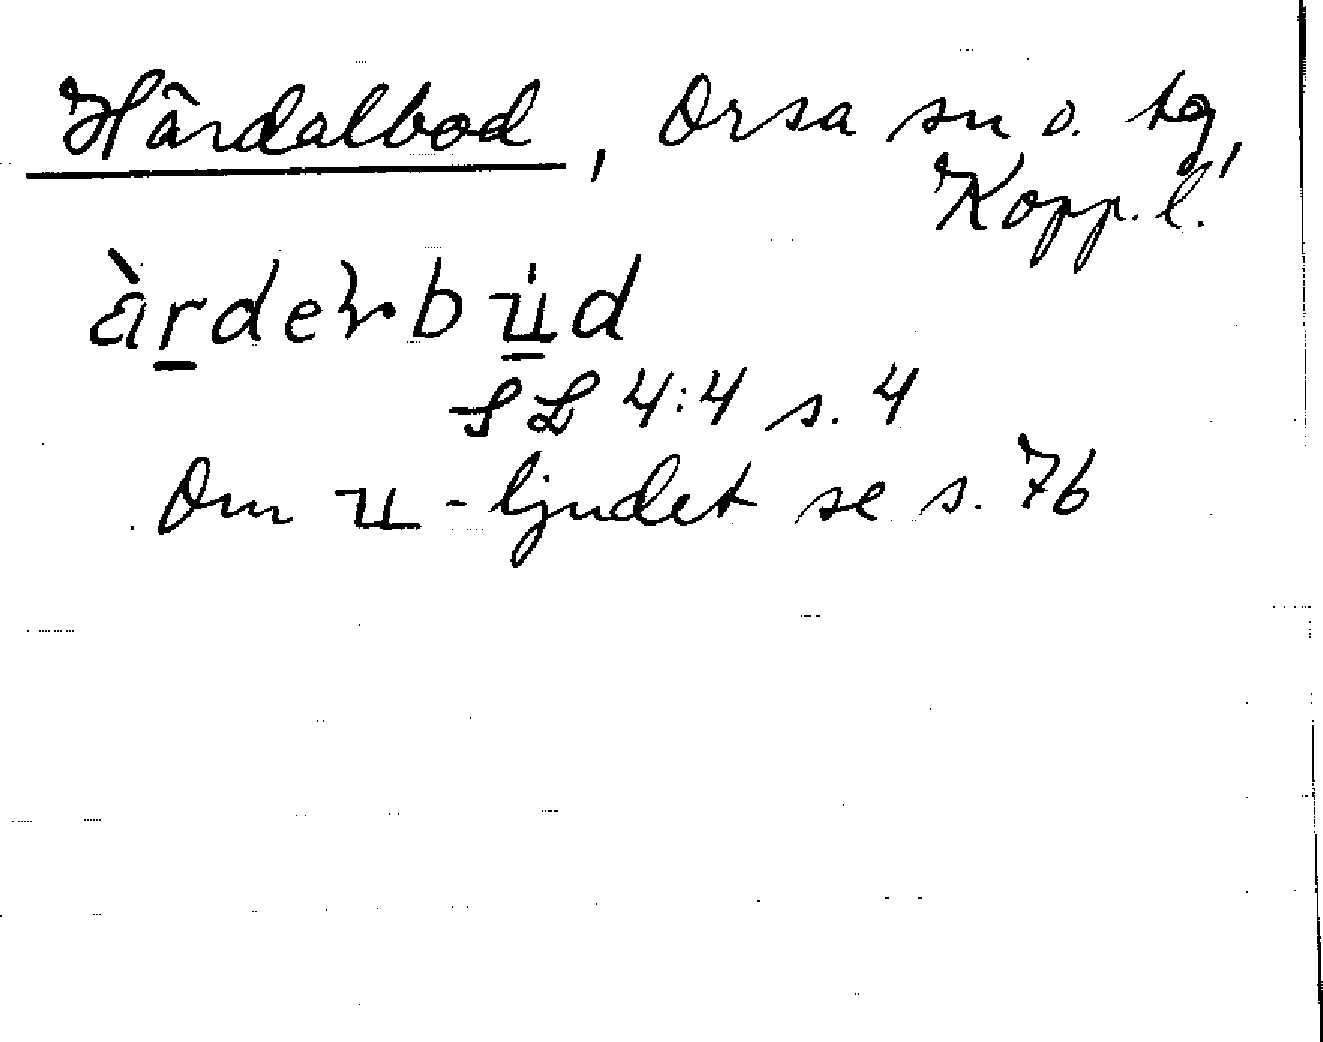 Hårdalbod, Orsa sn o. tg,
Kopp. l.
SL 4:4 s. 4
Om u-ljudet se s. 76